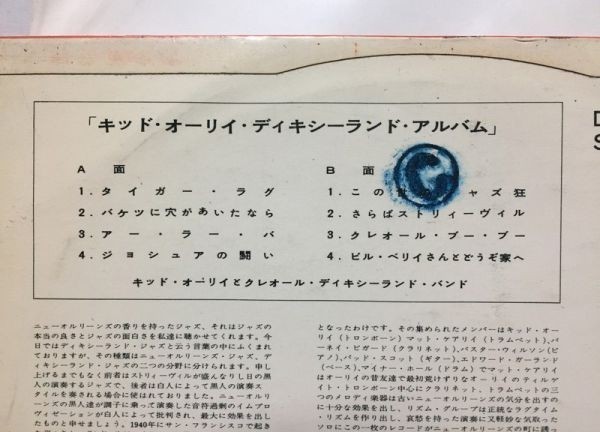 「キッド・オーリイ・ディキシーランド・アルバム」
A 面
1. タイガー・ラグ
2. バケツに穴があいたなら
3. アー・ラー・バ
4. ジョシュアの闘い
B 面
1. この ャズ狂
2. さらばストリィーヴィル
3. クレオール・ブー・ブー
4. ビル・ベリイさんとどうぞ家へ
キッド・オーリイとクレオール・ディキシーランド・バンド
D
S
ニューオルリーンズの香りを持ったジャズ、それはジャズの
本当の良さとジャズの面白さを私達に聴かせてくれます。今
日ではディキシーランド・ジャズと云う言葉の中にふくまれ
ておりますが、その種類はニューオルリーンズ・ジャズ、デ
ィキシーランド・ジャズの二つの分野に分けられます。申し
上げるまでもなく前者はストリィーヴィルが盛んなりし日の黒
人の演奏するジャズで、後者は白人によって黒人の演奏ス
タイルを奏される場合に使はれておりました。ニューオルリ
ーンズの黒人達が調子に乗って演奏した音符過剰のイムプロ
ヴィゼーションが白人によって批判され、最大に効果を出し
たものと申せましょう。1940年にサン・フランシスコで起き
となったわけです。その集められたメンバーはキッド・オー
リイ（トロンボーン）マット・ケアリイ（トラムペット）、バ
ーネイ・ビガード（クラリネット）、バスター・ウィルソン（ピ
アノ）、バッド・スコット（ギター）、エドワード・ガーランド
（ベース）、マイナー・ホール（ドラム）でマット・ケアリイ
はオーリイの昔友達で最初荒けずりなオーリイのティルゲ
イト・トロンボーン中心にクラリネット、トラムペットの三
つのメロディ楽器は古いニューオルリーンズの気分を出すの
に十分な効果を出し、リズム・グループは正統なラグタイム
・リズムを作り出し、哀愁を持った演奏に又軽妙な気取った
ソロにこの一枚のレコードがニューオルリーンズの町に誘っ